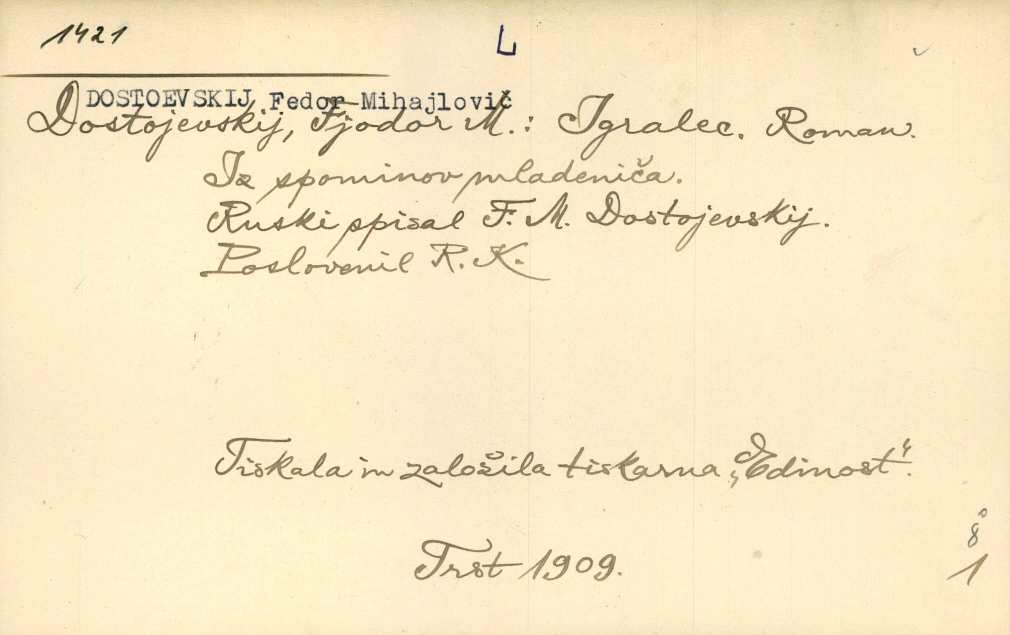 1421
L
DOSTOEVSKIJ Fedor Mihajlovič
Dostojevskij, Fjodor M.: Igralec. Roman.
Iz spominov mladeniča.
Ruski spisal F. M. Dostojevskij.
Poslovenil R. K.
Tiskala in založila tiskarna „Edinost“.
Trst 1909.
8°
1